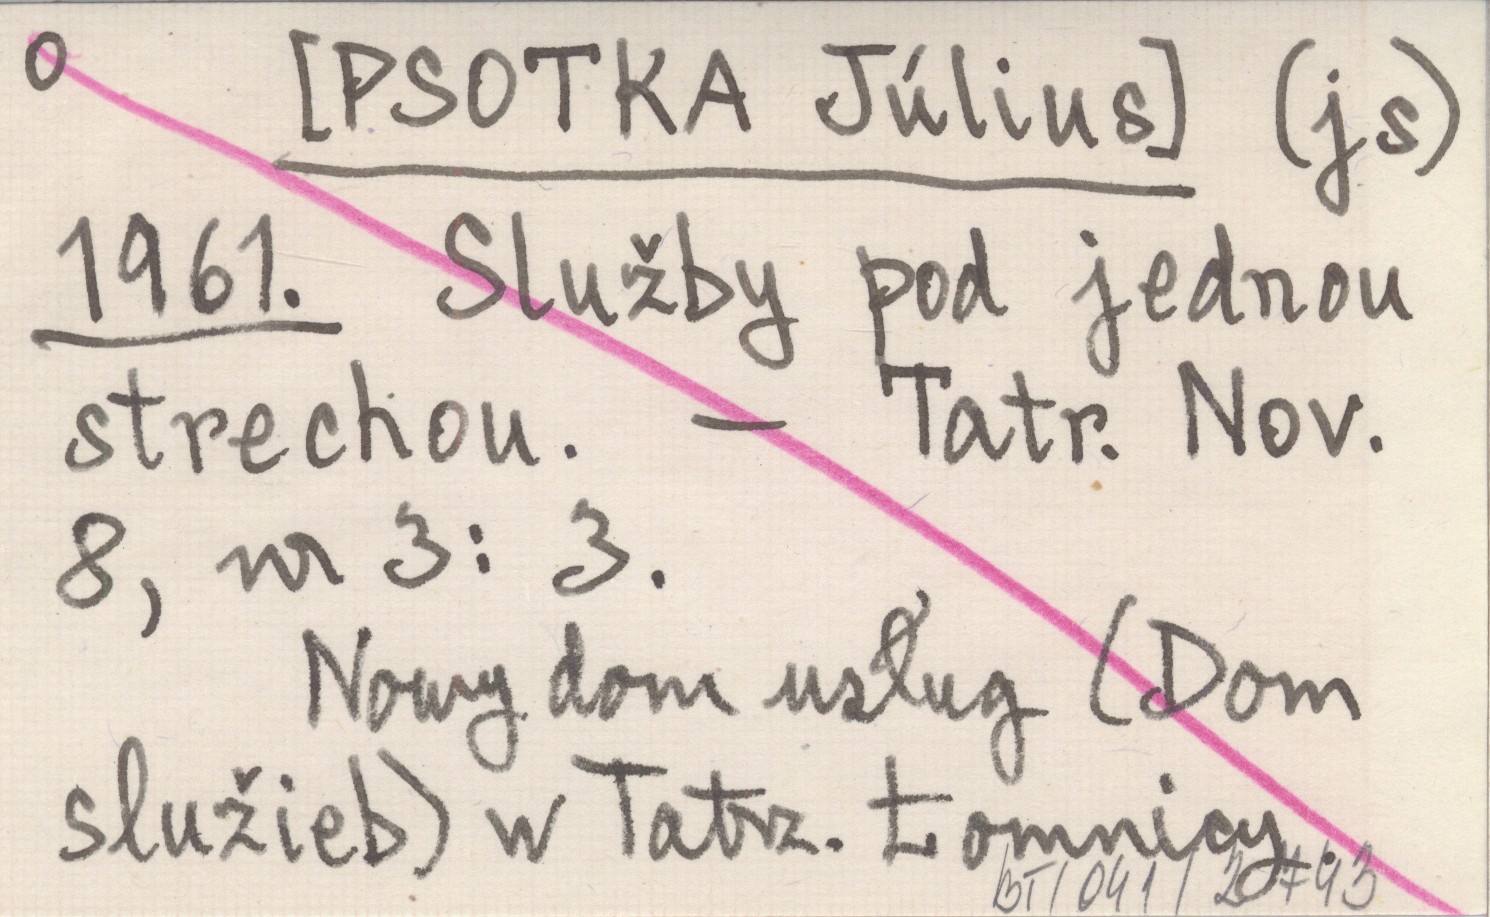 O [PSOTKA Július] (js)
1961. Služby pod jednou
strechou. — Tatr. Nov.
8, nr 3: 3.
Nowy dom usług (Dom
služieb) w Tatrz. Łomnicy.
BT/041/20743